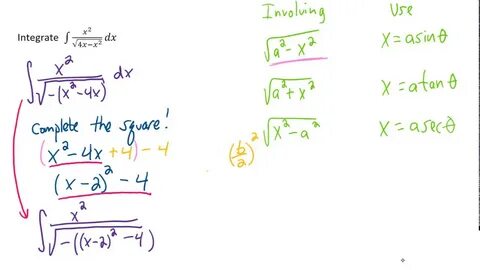 Integrate ∫ x²/√(4x−x²) dx
∫ x²/√(-(x²-4x)) dx
Complete the square!
(x²-4x+4)-4
(x-2)²-4
∫ x²/√(-((x-2)²-4))
(b/2)²
Involving Use
√(a²-x²) x=asinθ
√(a²+x²) x=atanθ
√(x²-a²) x=asecθ